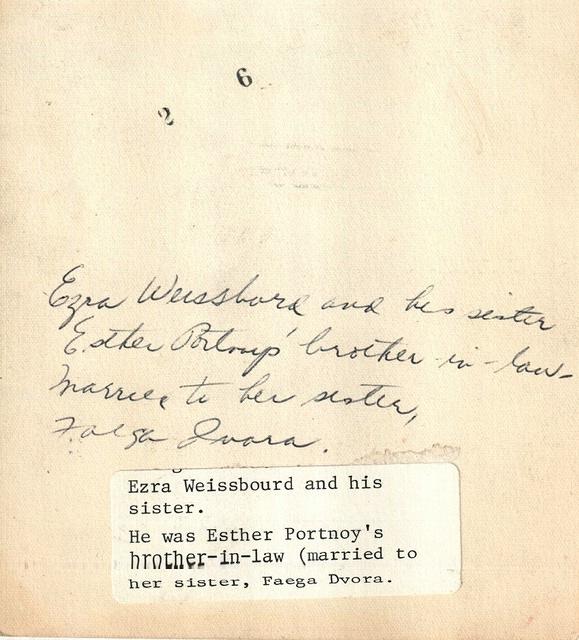 6
2
Ezra Weissbord and his sister
Esther Portnoy's brother-in-law
married to her sister,
Faega Dvora.
Ezra Weissbourd and his
sister.
He was Esther Portnoy's
brother-in-law (married to
her sister, Faega Dvora.